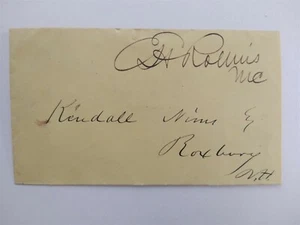 E H Rollins
MC
Kendall Nims Esq
Roxbury
N.H.